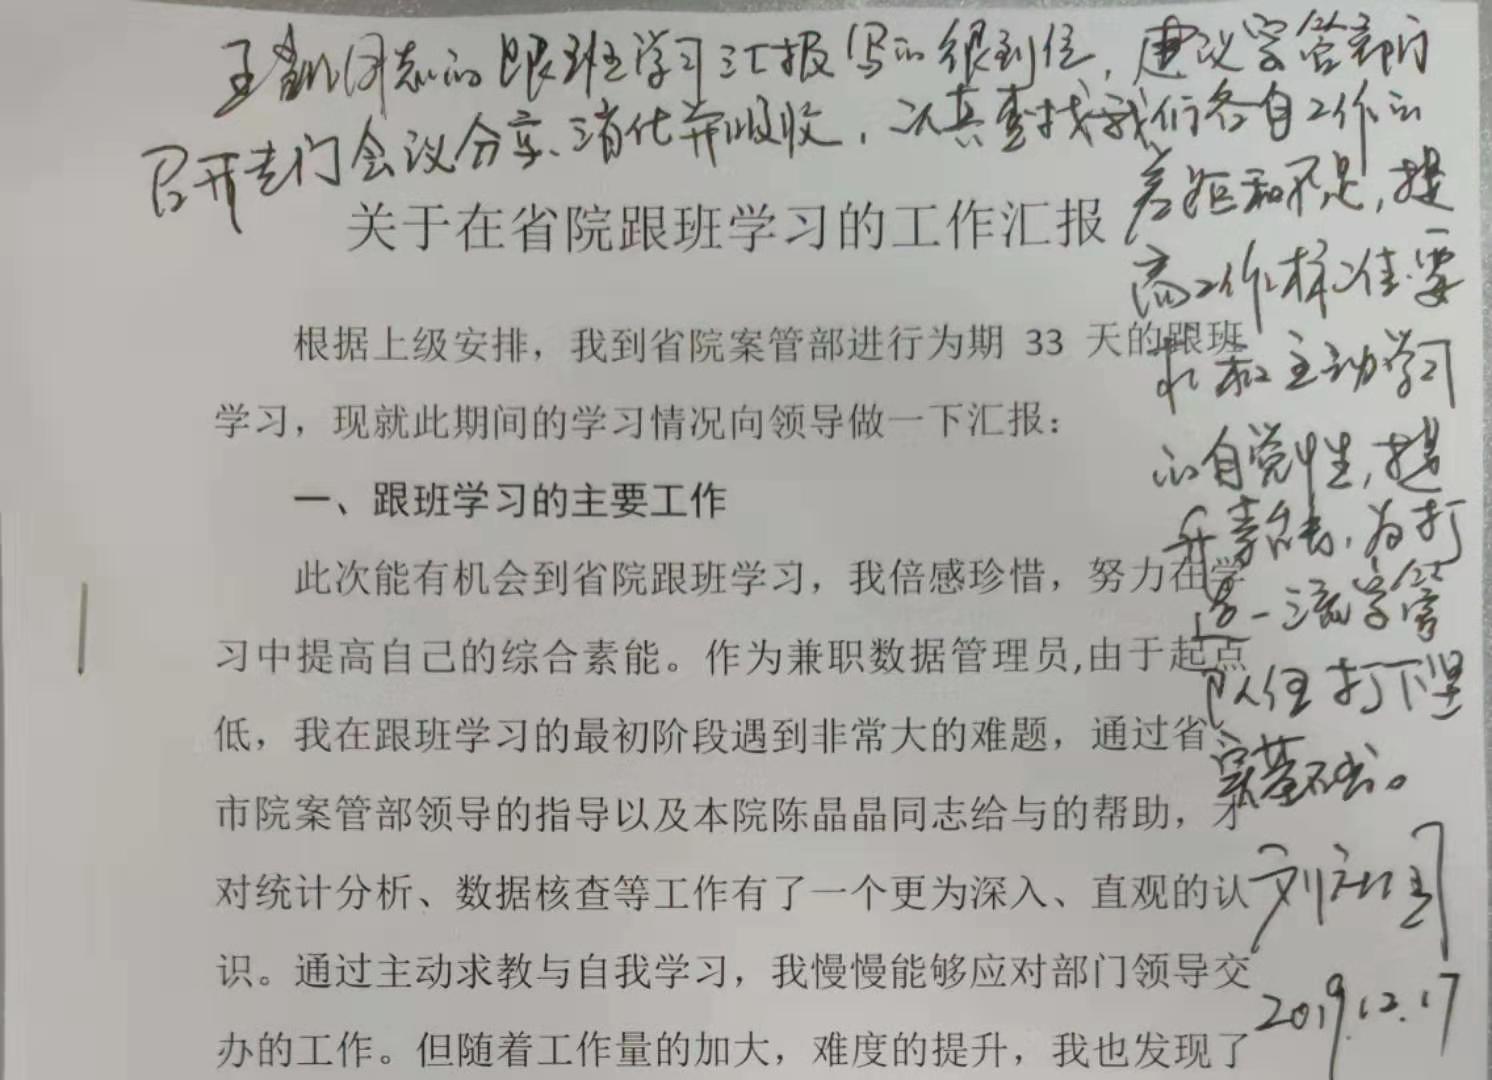 王凯同志的跟班学习汇报写的很到位，建议案管部门
召开专门会议分享、消化并吸收，认真查找我们各自工作的
差距和不足，提
高工作标准要
求和主动学习
的自觉性，提
升素能，为打
造一流案管
队伍打下坚
实基础。
刘
2019.12.17
关于在省院跟班学习的工作汇报
根据上级安排，我到省院案管部进行为期 33 天的跟班
学习，现就此期间的学习情况向领导做一下汇报：
一、跟班学习的主要工作
此次能有机会到省院跟班学习，我倍感珍惜，努力在学
习中提高自己的综合素能。作为兼职数据管理员,由于起点
低，我在跟班学习的最初阶段遇到非常大的难题，通过省、
市院案管部领导的指导以及本院陈晶晶同志给与的帮助，才
对统计分析、数据核查等工作有了一个更为深入、直观的认
识。通过主动求教与自我学习，我慢慢能够应对部门领导交
办的工作。但随着工作量的加大，难度的提升，我也发现了